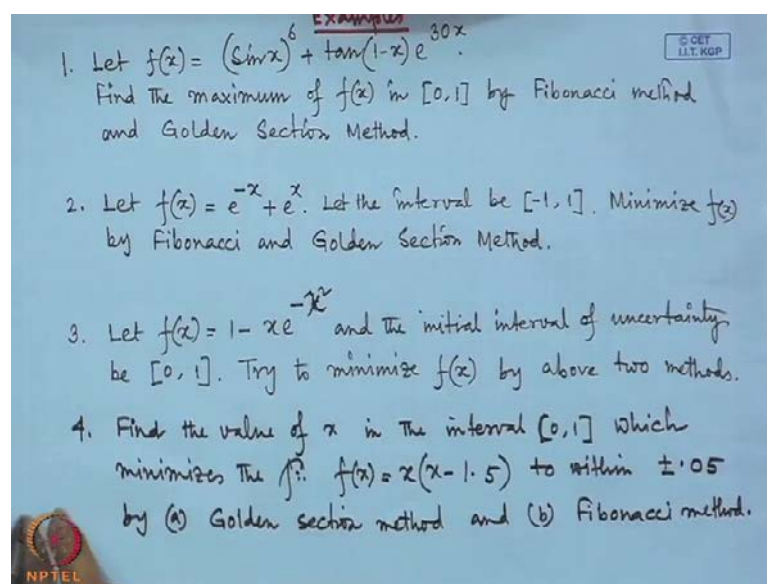 Examples
© CET
I.I.T. KGP
1. Let f(x) = (Sinx)^6 + tan(1-x) e^30x.
Find The maximum of f(x) in [0,1] by Fibonacci method
and Golden Section Method.
2. Let f(x) = e^-x + e^x. Let the interval be [-1, 1]. Minimize f(x)
by Fibonacci and Golden Section Method.
3. Let f(x) = 1 - xe^-x^2 and The initial interval of uncertainty
be [0, 1]. Try to minimize f(x) by above two methods.
4. Find the value of x in The interval [0,1] which
minimizes The fn: f(x) = x(x-1.5) to within ±.05
by (a) Golden section method and (b) Fibonacci method.
NPTEL